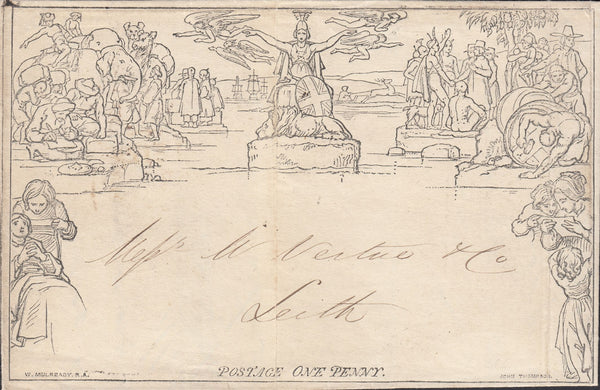 Messrs W Vertue & Co
Leith
W. MULREADY. R.A.
POSTAGE ONE PENNY.
JOHN THOMPSON